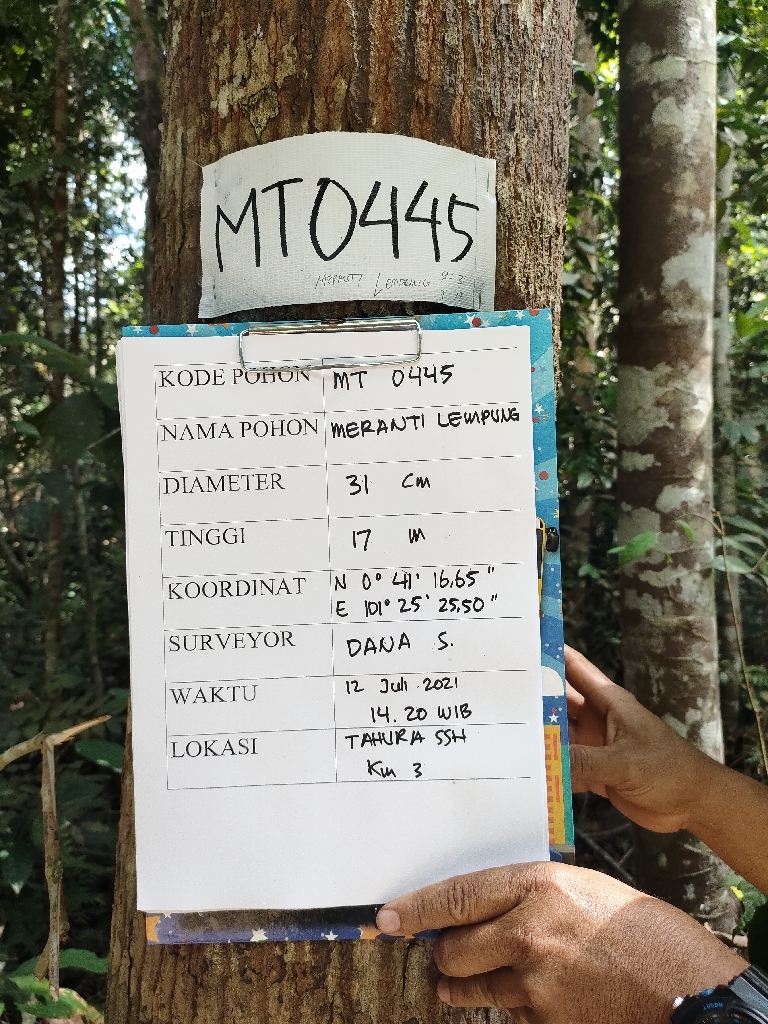 MT0445
MERANTI LEMPUNG
KODE POHON MT 0445
NAMA POHON MERANTI LEMPUNG
DIAMETER 31 cm
TINGGI 17 m
KOORDINAT N 0° 41' 16,65"
E 101° 25' 25,50"
SURVEYOR DANA S.
WAKTU 12 Juli 2021
14.20 WIB
LOKASI TAHURA SSH
Km 3